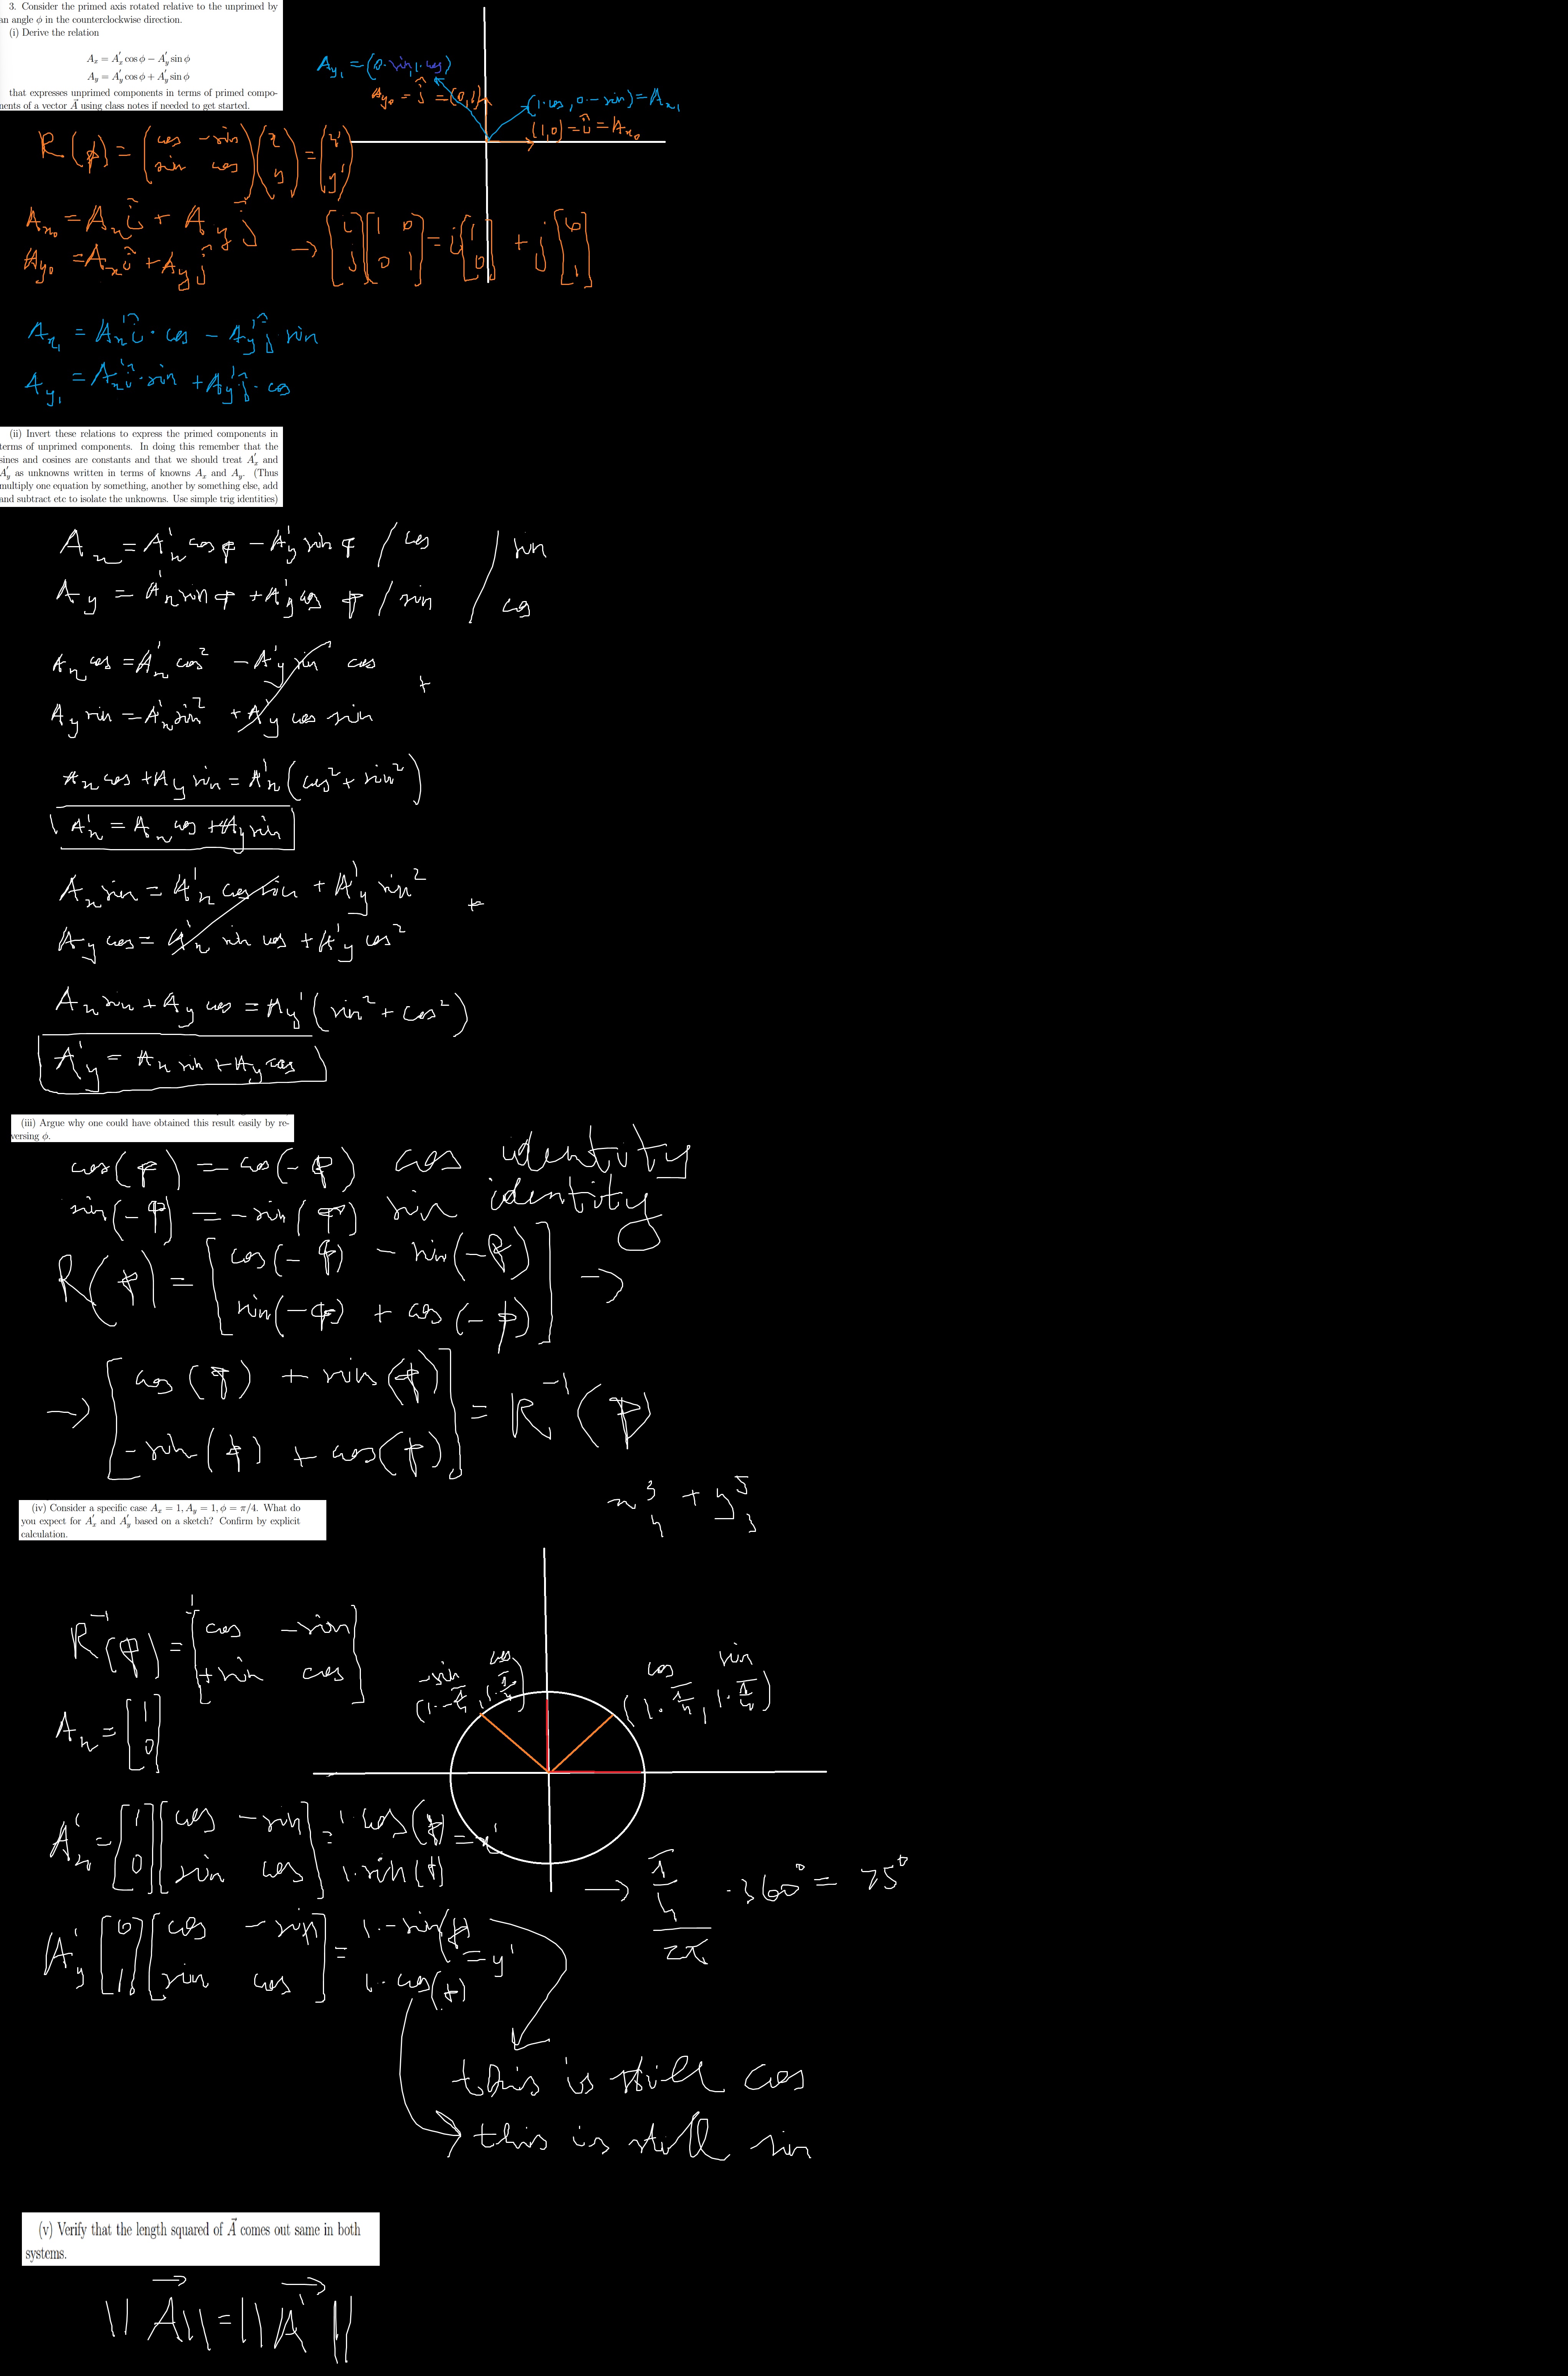 3. Consider the primed axis rotated relative to the unprimed by
an angle ϕ in the counterclockwise direction.
(i) Derive the relation
A_x = A'_x cos ϕ − A'_y sin ϕ
A_y = A'_y cos ϕ + A'_y sin ϕ
that expresses unprimed components in terms of primed compo-
nents of a vector A⃗ using class notes if needed to get started.
A_y₁ = (0·sin, 1·cos)
A_y₀ = ĵ = (0,1)
(1·cos, 0·−sin) = A_x₁
(1,0) = î = A_x₀
R(ϕ) = (cos −sin; sin cos)(x; y) = (x'; y')
A_x₀ = A_x î + A_y ĵ
A_y₀ = A_x î + A_y ĵ → [i; j][1 0; 0 1] = i[1; 0] + j[0; 1]
A_x₁ = A'_x î · cos − A'_y ĵ sin
A_y₁ = A'_x î · sin + A'_y ĵ · cos
(ii) Invert these relations to express the primed components in
terms of unprimed components. In doing this remember that the
sines and cosines are constants and that we should treat A'_x and
A'_y as unknowns written in terms of knowns A_x and A_y. (Thus
multiply one equation by something, another by something else, add
and subtract etc to isolate the unknowns. Use simple trig identities)
A_x = A'_x cos ϕ − A'_y sin ϕ / cos / sin
A_y = A'_x sin ϕ + A'_y cos ϕ / sin / cos
A_x cos = A'_x cos² − A'_y sin cos
+
A_y sin = A'_x sin² + A'_y cos sin
A_x cos + A_y sin = A'_x (cos² + sin²)
A'_x = A_x cos + A_y sin
A_x sin = A'_x cos sin + A'_y sin²
+
A_y cos = A'_x sin cos + A'_y cos²
A_x sin + A_y cos = A_y' (sin² + cos²)
A'_y = A_x sin + A_y cos
(iii) Argue why one could have obtained this result easily by re-
versing ϕ.
cos(ϕ) = cos(−ϕ) cos identity
sin(−ϕ) = −sin(ϕ) sin identity
R(ϕ) = [cos(−ϕ) −sin(−ϕ); sin(−ϕ) + cos(−ϕ)] →
→ [cos(ϕ) + sin(ϕ); −sin(ϕ) + cos(ϕ)] = R⁻¹(ϕ)
(iv) Consider a specific case A_x = 1, A_y = 1, ϕ = π/4. What do
you expect for A'_x and A'_y based on a sketch? Confirm by explicit
calculation.
R⁻¹(ϕ) = [cos −sin; +sin cos]
−sin cos
(1·−π/4, 1·π/4)
cos sin
(1·π/4, 1·π/4)
A_x = [1; 0]
A'_x = [1; 0][cos −sin; sin cos] = 1·cos(ϕ) 1·sin(ϕ) = x'
→ π/4 / 2π · 360° = 75°
A'_y [0; 1][cos −sin; sin cos] = 1·−sin(ϕ) 1·cos(ϕ) = y'
this is still cos
this is still sin
(v) Verify that the length squared of A⃗ comes out same in both
systems.
||A⃗|| = ||A⃗'||